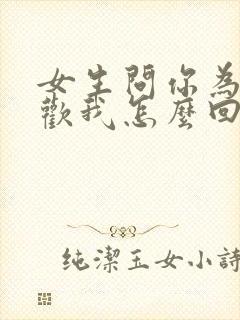 女生問你為
歡我怎麼回
纯潔玉女小詩